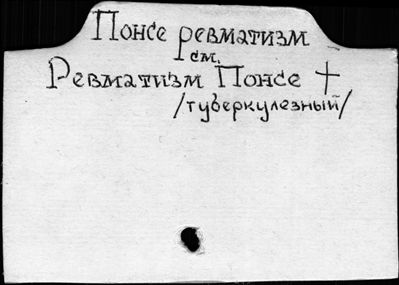 Понсе ревматизм
см.
Ревматизм Понсе †
/туберкулезный/